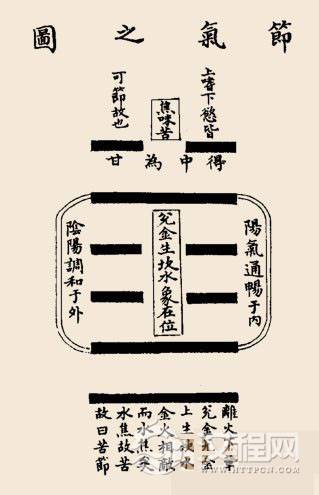 節氣之圖
上嗜下慾皆
焦味苦
可節故也
得中為甘
陽氣通暢于內
兌金生坎水象在位
陰陽調和于外
離火下
兌金兌金
上生坎水
金火相敵
而水焦矣
水焦故苦
故曰苦節
汉程网
HTTPCN.COM